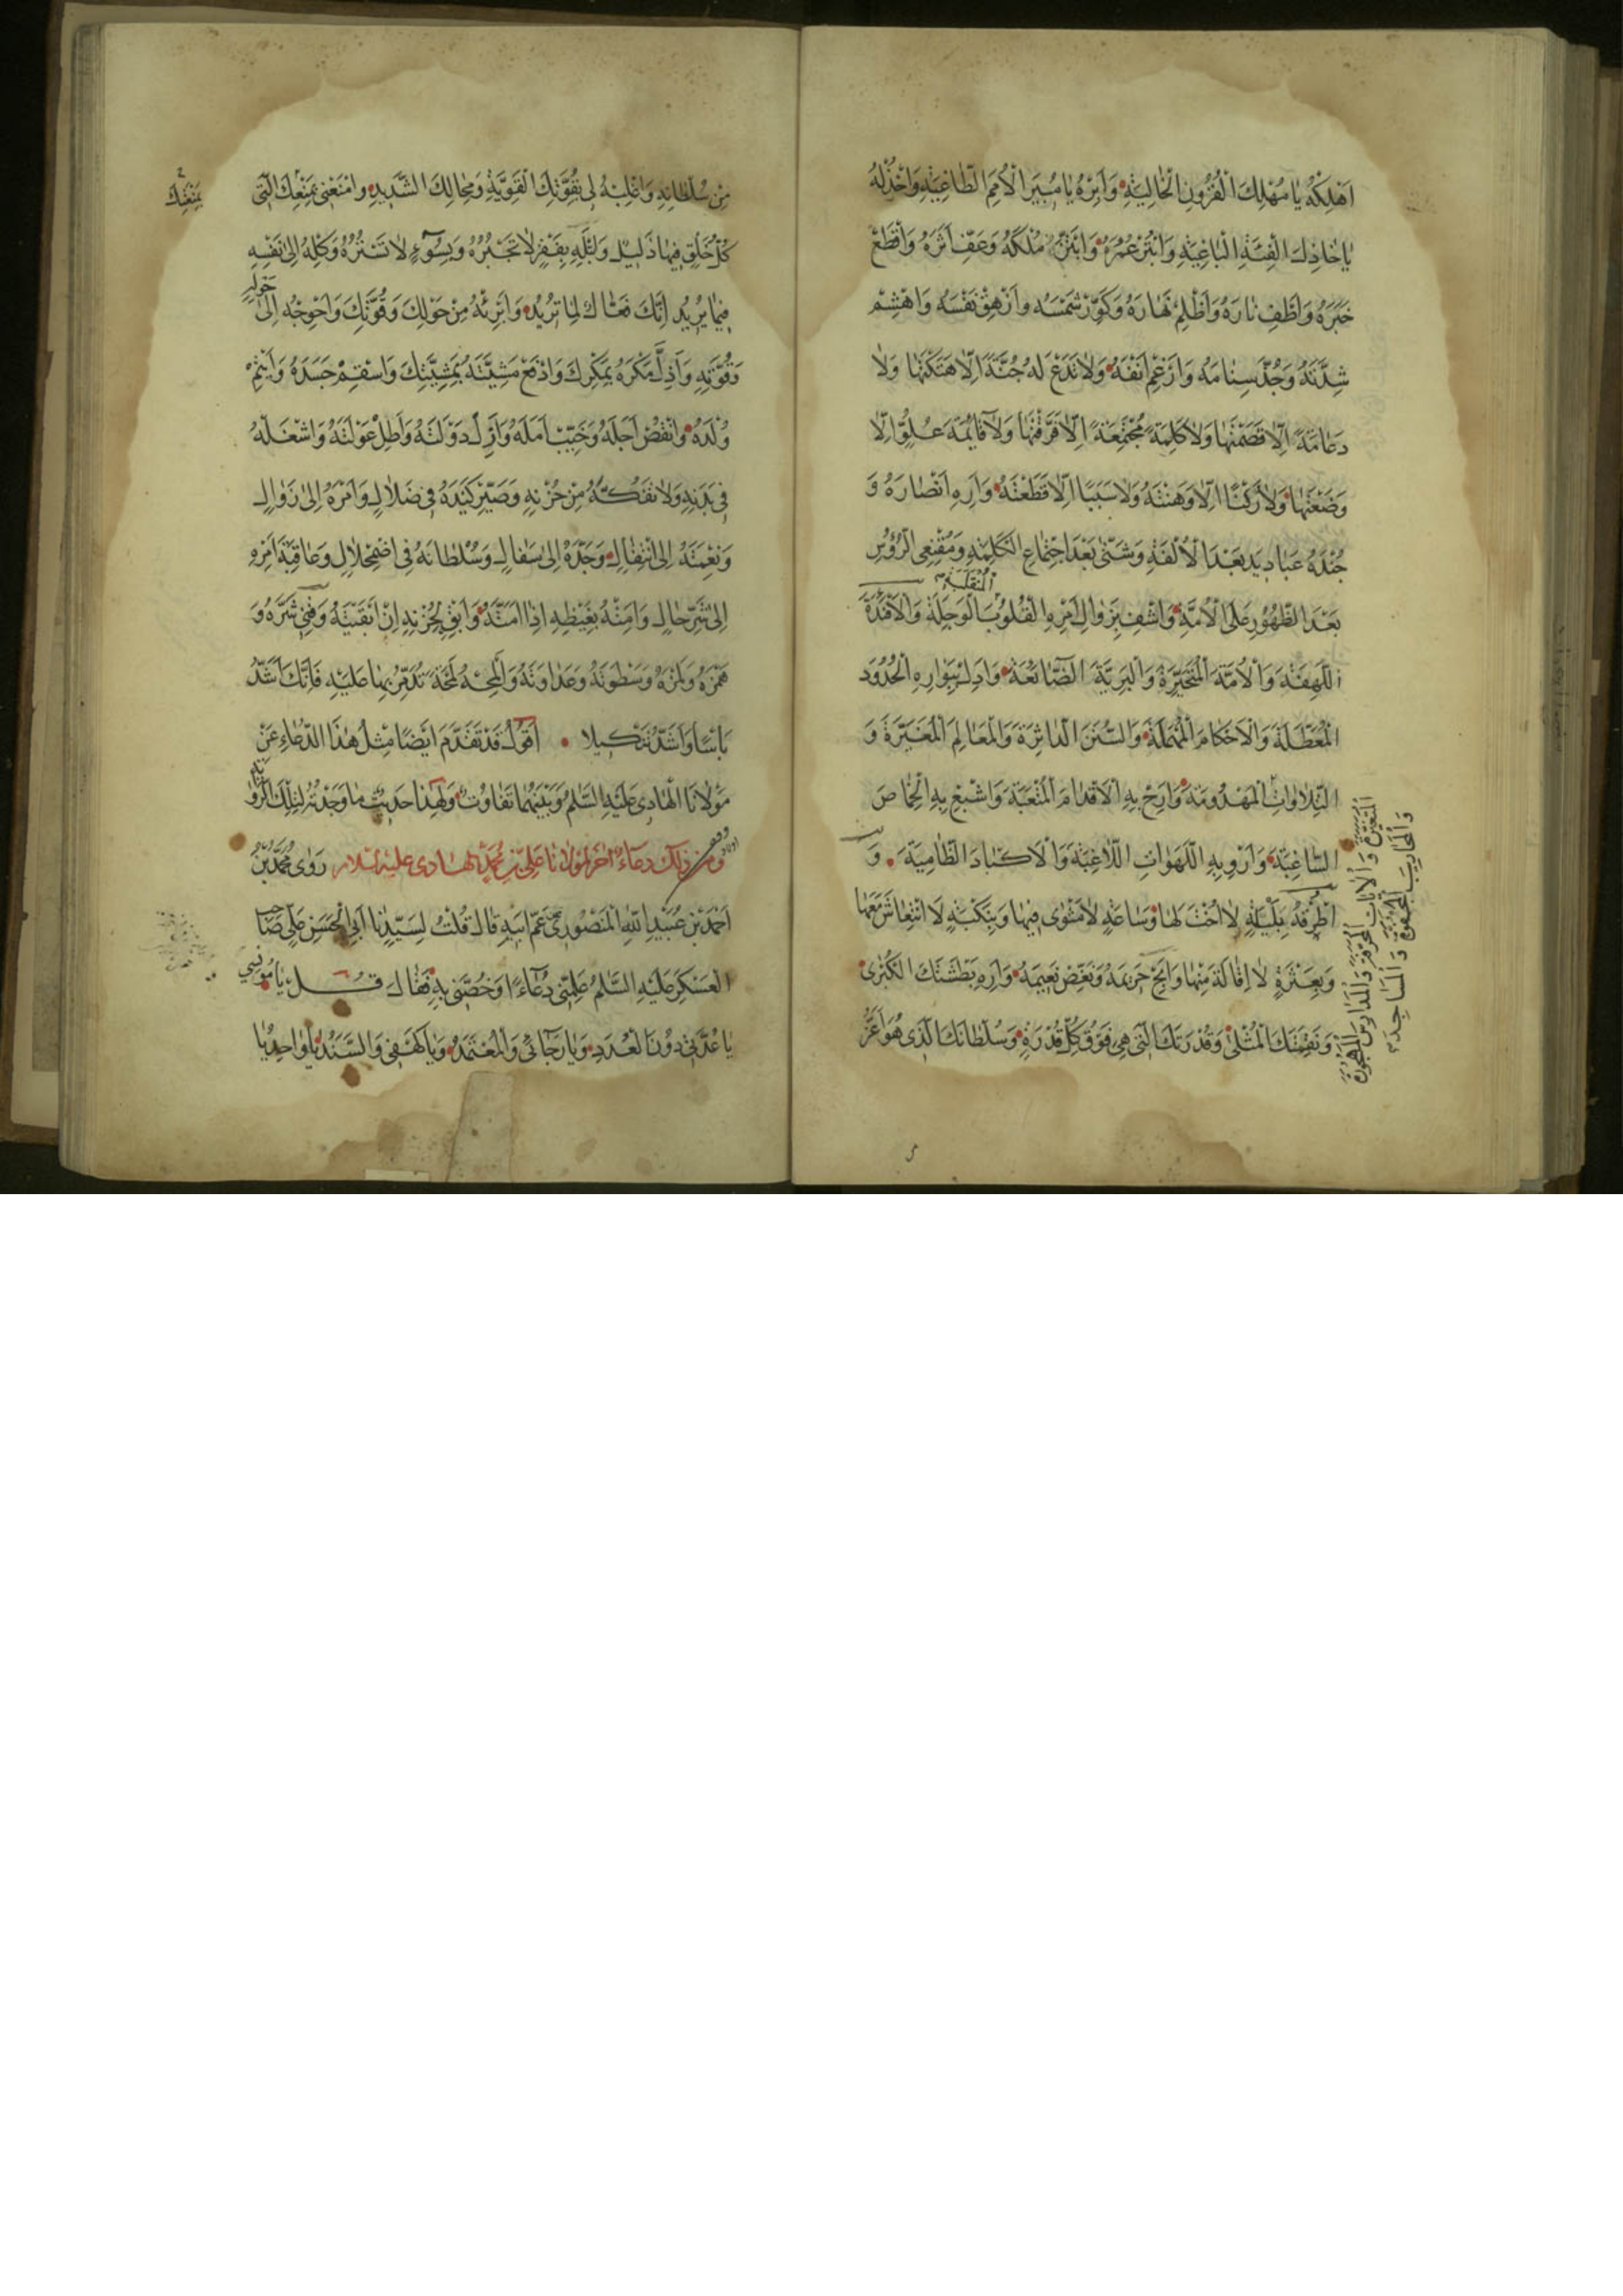 اَهْلِكْهُ يَا مُهْلِكَ الْقُرُونِ الْخَالِيَةِ وَاَبِرْهُ يَا مُبِيرَ الْاُمَمِ الطَّاغِيَةِ وَاخْذُلْهُ
يَا خَاذِلَ الْفِئَةِ الْبَاغِيَةِ وَابْتُرْ عُمُرَهُ وَابْتَزَّ مُلْكَهُ وَعَفِّ اَثَرَهُ وَاقْطَعْ
خَبَرَهُ وَاَطْفِ نَارَهُ وَاَظْلِمْ نَهَارَهُ وَكَوِّرْ شَمْسَهُ وَاَزْهِقْ نَفْسَهُ وَاهْشِمْ
شِدَّتَهُ وَجُذَّ سِنَامَهُ وَاَرْغِمْ اَنْفَهُ وَلَا تَدَعْ لَهُ جُنَّةً اِلَّا هَتَكْتَهَا وَلَا
دَعَامَةً اِلَّا قَصَمْتَهَا وَلَا كَلِمَةً مُجْتَمِعَةً اِلَّا فَرَّقْتَهَا وَلَا قَائِمَةَ عُلُوٍّ اِلَّا
وَضَعْتَهَا وَلَا رُكْنًا اِلَّا وَهَنْتَهُ وَلَا سَبَبًا اِلَّا قَطَعْتَهُ وَاَرِهِ اَنْصَارَهُ وَ
جُنْدَهُ عَبَادِيدَ بَعْدَ الْاُلْفَةِ وَشَتّٰى بَعْدَ اجْتِمَاعِ الْكَلِمَةِ وَمُقْنِعِى الرُّؤُسِ
بَعْدَ الظُّهُورِ عَلَى الْاُمَّةِ وَاشْفِ بِزَوَالِ اَمْرِهِ الْقُلُوبَ الْوَجِلَةَ وَالْاَفْئِدَةَ
اللَّهِفَةَ وَالْاُمَّةَ الْمُتَحَيِّرَةَ وَالْبَرِيَّةَ الضَّائِعَةَ وَاَدِلْ بِبَوَارِهِ الْحُدُودَ
الْمُعَطَّلَةَ وَالْاَحْكَامَ الْمُهْمَلَةَ وَالسُّنَنَ الدَّاثِرَةَ وَالْمَعَالِمَ الْمُغَيَّرَةَ وَ
التِّلَاوَاتِ الْمَهْدُومَةَ وَاَرِحْ بِهِ الْاَقْدَامَ الْمُتْعَبَةَ وَاَشْبِعْ بِهِ الْخِمَاصَ
السَّاغِبَةَ وَاَرْوِ بِهِ اللَّهَوَاتِ اللَّاغِبَةَ وَالْاَكْبَادَ الظَّامِيَةَ وَ
اطْرُقْهُ بِلَيْلَةٍ لَا اُخْتَ لَهَا وَسَاعَةٍ لَا مَثْوٰى فِيهَا وَبِنَكْبَةٍ لَا انْتِعَاشَ مَعَهَا
وَبِعَثْرَةٍ لَا اِقَالَةَ مِنْهَا وَاَبِحْ حَرِيمَهُ وَنَغِّصْ نَعِيمَهُ وَاَرِهِ بَطْشَتَكَ الْكُبْرٰى
وَنَقِمَتَكَ الْمُثْلٰى وَقُدْرَتَكَ الَّتِى هِىَ فَوْقَ كُلِّ قُدْرَةٍ وَسُلْطَانَكَ الَّذِى هُوَ اَعَزُّ
الْمُتَغَيِّرَةَ وَالْاٰيَاتِ الْمُحَرَّفَةَ وَالْمَدَارِسَ الْمَهْجُورَةَ
وَالْمَحَارِيبَ الْمَجْفُوَّةَ وَالْمَسَاجِدَ
مِنْ سُلْطَانِهِ وَاغْلِبْهُ لِى بِقُوَّتِكَ الْقَوِيَّةِ وَمِحَالِكَ الشَّدِيدِ وَامْنَعْنِى بِمَنْعِكَ الَّتِى
كُلُّ خَلْقٍ فِيهَا ذَلِيلٌ وَابْتَلِهِ بِفَقْرٍ لَا تَجْبُرُهُ وَبِسُوءٍ لَا تَسْتُرُهُ وَكِلْهُ اِلٰى نَفْسِهِ
فِيمَا يُرِيدُ اِنَّكَ فَعَّالٌ لِمَا تُرِيدُ وَابْرِئْهُ مِنْ حَوْلِكَ وَقُوَّتِكَ وَاَحْوِجْهُ اِلٰى حَوْلِهِ
وَقُوَّتِهِ وَاَذِلَّ مَكْرَهُ بِمَكْرِكَ وَادْفَعْ مَشِيَّتَهُ بِمَشِيَّتِكَ وَاسْقِمْ جَسَدَهُ وَاَيْتِمْ
وُلْدَهُ وَانْقُصْ اَجَلَهُ وَخَيِّبْ اَمَلَهُ وَاَزِلْ دَوْلَتَهُ وَاَطِلْ عَوْلَتَهُ وَاشْغَلْهُ
فِى بَدَنِهِ وَلَا تَفُكَّهُ مِنْ حُزْنِهِ وَصَيِّرْ كَيْدَهُ فِى ضَلَالٍ وَاَمْرَهُ اِلٰى زَوَالٍ
وَنِعْمَتَهُ اِلَى انْتِقَالٍ وَجَدَّهُ اِلٰى سَفَالٍ وَسُلْطَانَهُ فِى اضْمِحْلَالٍ وَعَاقِبَةَ اَمْرِهِ
اِلٰى شَرِّ حَالٍ وَاَمِتْهُ بِغَيْظِهِ اِذَا اَمَتَّهُ وَاَبْقِهِ بِحُزْنِهِ اِنْ اَبْقَيْتَهُ وَقِنِى شَرَّهُ وَ
هَمْزَهُ وَلَمْزَهُ وَسَطْوَتَهُ وَعَدَاوَتَهُ وَالْمَحْهُ لَمْحَةً تُدَمِّرُ بِهَا عَلَيْهِ فَاِنَّكَ اَشَدُّ
بَاْسًا وَاَشَدُّ تَنْكِيلًا اَقُولُ قَدْ تَقَدَّمَ اَيْضًا مِثْلُ هٰذَا الدُّعَاءِ عَنْ
مَوْلَانَا الْهَادِى عَلَيْهِ السَّلَمُ وَبَيْنَهُمَا تَفَاوُتٌ وَلِهٰذَا حَدِيثٌ مَا وَجَدْتُهُ لِتِلْكَ الرِّوَايَةِ
وَمِنْ ذٰلِكَ دعاءٌ اٰخر لمولانا عَلِىِّ بنِ مُحَمَّدٍ الهادى عليه السلام رَوٰى مُحَمَّدُ بْنُ
اَحْمَدَ بْنِ عُبَيْدِ اللّٰهِ الْمَنْصُورِى عَنْ عَمِّ اَبِيهِ قَالَ قُلْتُ لِسَيِّدِنَا اَبِى الْحَسَنِ عَلِىٍّ صَاحِبِ
الْعَسْكَرِ عَلَيْهِ السَّلَمُ عَلِّمْنِى دُعَاءً وَخُصَّنِى بِهِ فَقَالَ قُل يَا مُونِسِي
يَا عُدَّتِى دُونَ الْعُدَدِ وَيَا رَجَائِى وَالْمُعْتَمَدُ وَيَا كَهْفِى وَالسَّنَدُ يَا وَاحِدُ يَا